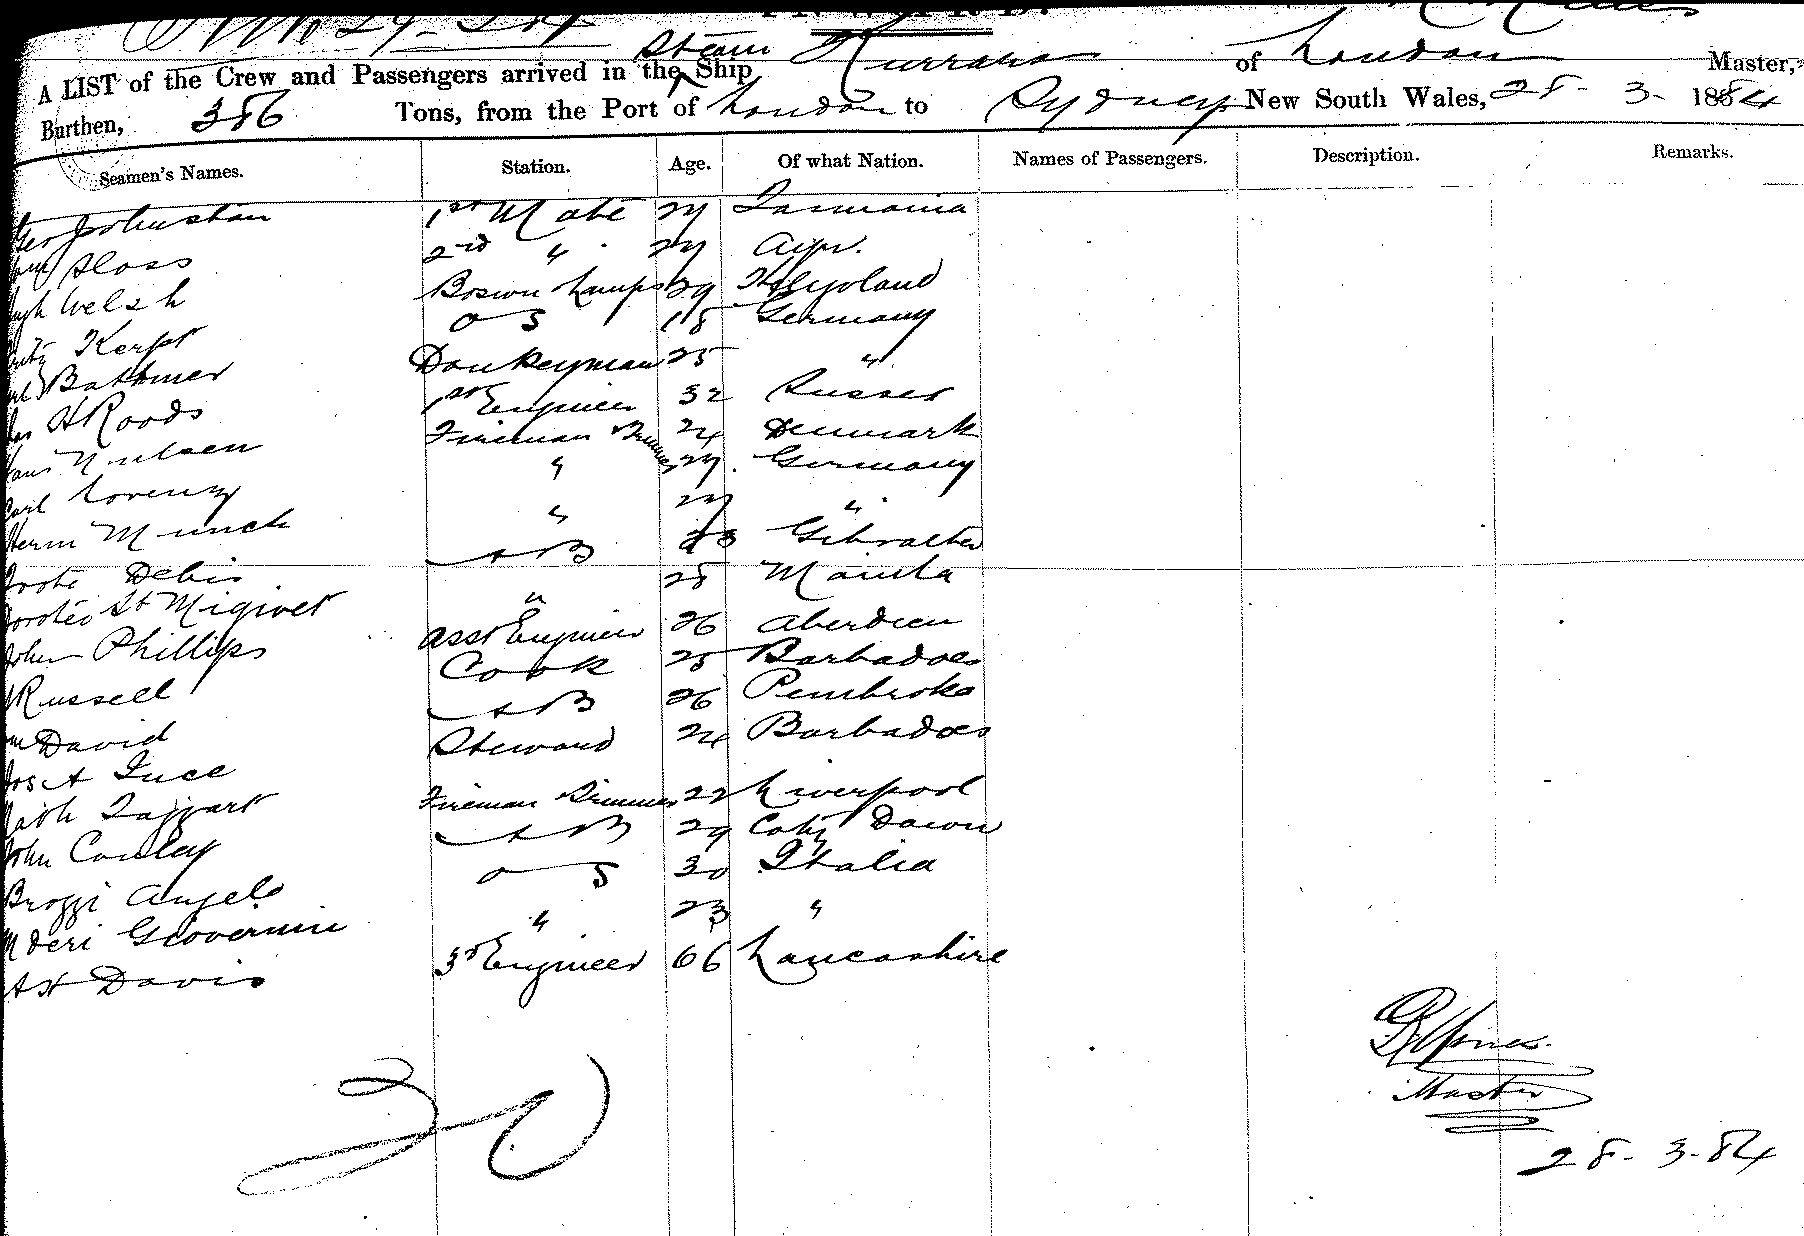 Steam Kurrara of London
A LIST of the Crew and Passengers arrived in the Ship Master,
Burthen, 386 Tons, from the Port of London to Sydney New South Wales, 28 - 3 - 1884
Seamen's Names. Station. Age. Of what Nation. Names of Passengers. Description. Remarks.
Geo Johnston 1st Mate 27 Tasmania
Sloss 2nd " 27 Ayr.
Hugh Welsh Boswn Lamps 29 Helgoland
Fritz Kerst O S 18 Germany
Bathmer Donkeyman 25 "
H Roods 1st Engineer 32 Sussex
Hans Nielsen Fireman Trimmer 24 Denmark
Carl Lorenz " 27 Germany
Herm Munch " 27 "
Debis A B Gibralter
Doroteo St Migivel " 28 Manila
John Phillips Asst Engineer 26 Aberdeen
Russell Cook 25 Barbadoes
Wm David A B 26 Pembroke
Jos A Luce Steward 24 Barbadoes
Math Taggart Fireman Trimmer 22 Liverpool
John Conley A B 29 Coty Down
Brozzi Angelo O S 30 Ithalia
Giovernini " 23 "
A H Davis 3rd Engineer 66 Lancashire
Master
28 - 3 - 84